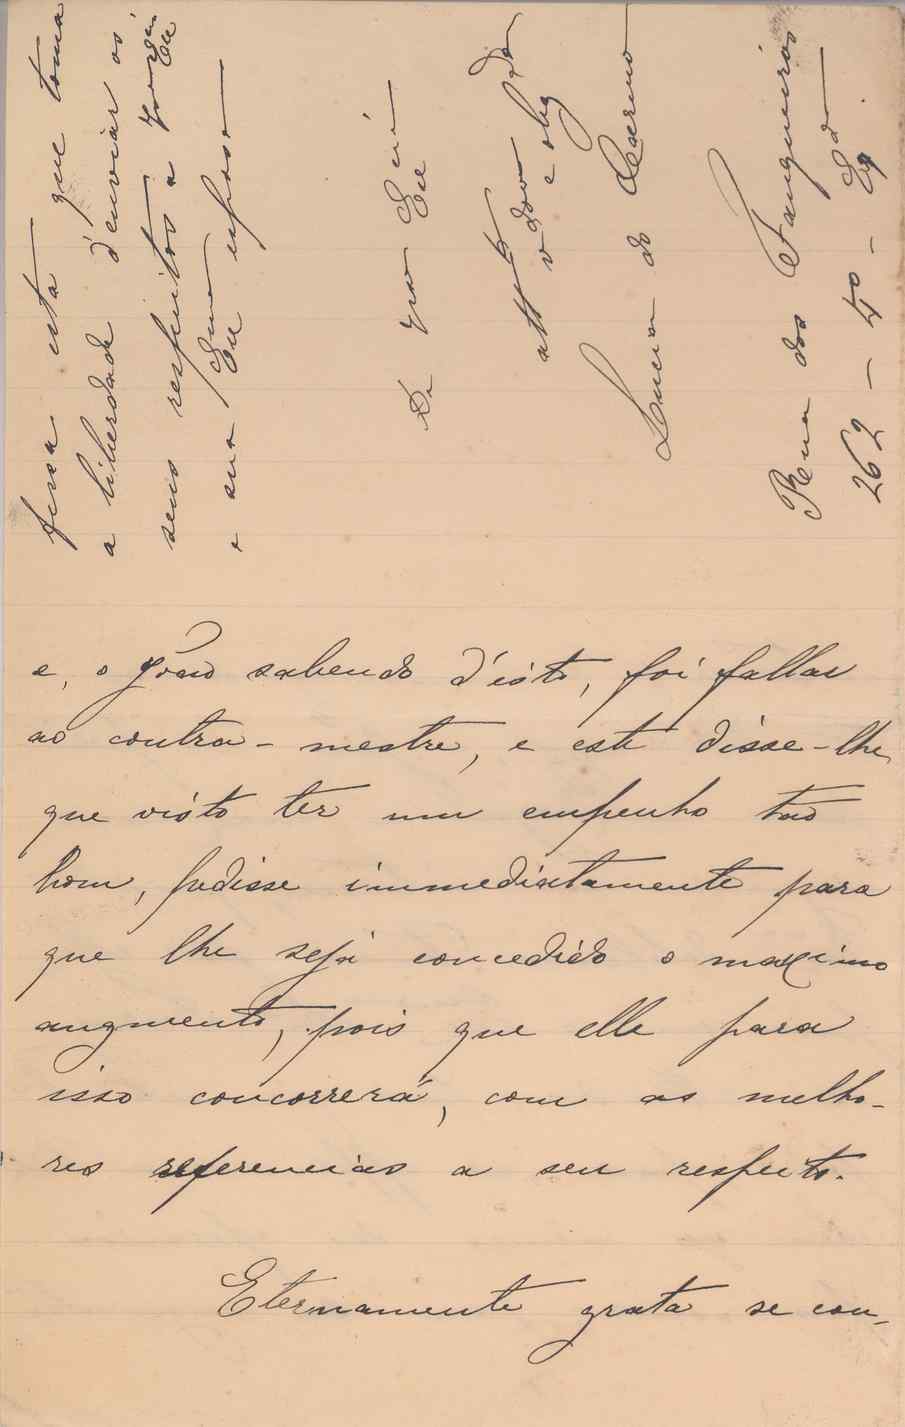 e, o João sabendo d'isto, foi fallar
ao contra-mestre, e este disse-lhe,
que visto ter um empenho tão
bom, pedisse immediatamente para
que lhe seja concedido o maximo
augmento, pois que elle para
isso concorrerá, com as melho-
res referencias a seu respeito.
Eternamente grata se con-
fessa esta que toma
a liberdade d'enviar os
seus respeitos a
e sua Exma esposa
De
atta vdora e obgda
Lucia do Carmo
Rua dos Fanqueiros
262 - 4o - Eqdo